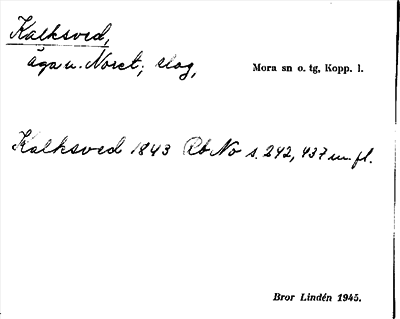 Kalksved,
äga u. Noret; slog,
Mora sn o. tg, Kopp. l.
Kalksved 1843 Rb No s. 242, 437 m. fl.
Bror Lindén 1945.